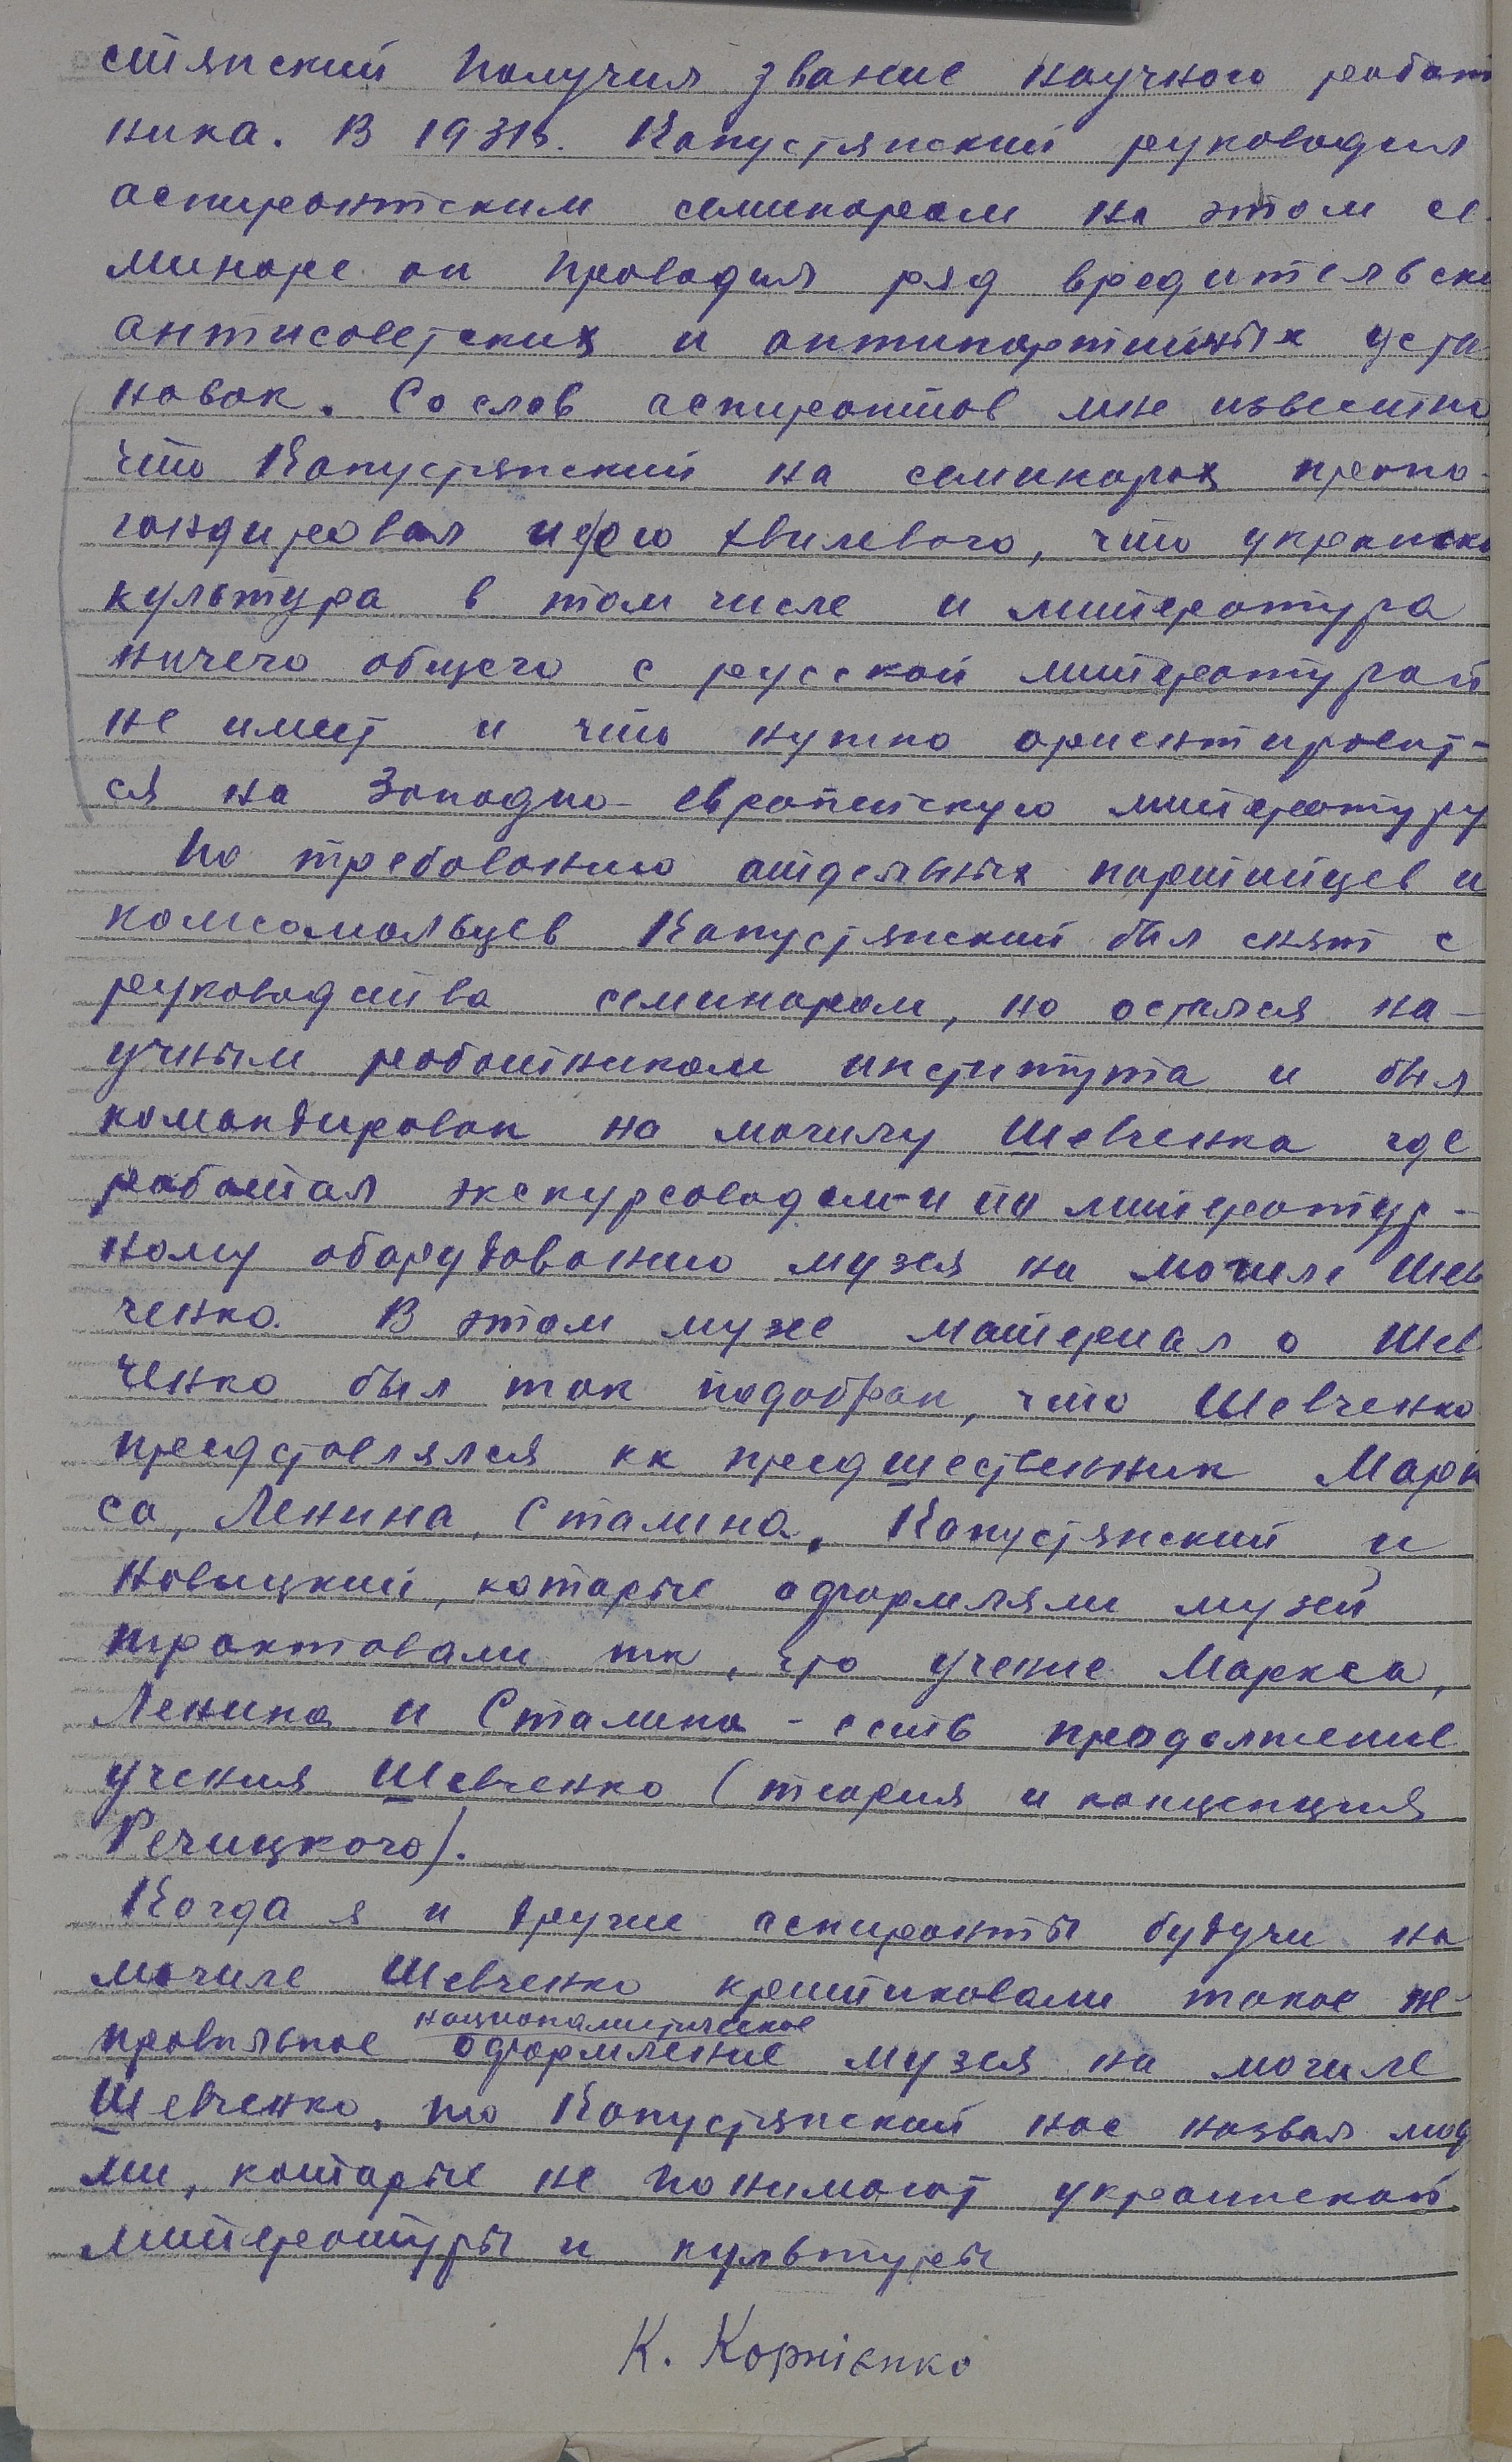 стянский получил звание научного работ
ника. В 1931г. Капустянский руководил
аспирантским семинаром на этом се-
минаре он проводил ряд вредительски
антисоветских и антипартийных уста
новок. Со слов аспирантов мне известно
что Капустянский на семинарах пропа-
гандировал идею Хвилевого, что украинска
культура в том числе и литература
ничего общего с русской литературой
не имеет и что нужно ориентироват-
ся на Западно-европейскую литературу
По требованию отдельных партийцев и
комсомольцев Капустянский был снят с
руководства семинаром, но остался на-
учным работником института и был
командирован на могилу Шевченка где
работал экскурсоводом и по литератур-
ному оборудованию музея на могиле Шев
ченко. В этом музее материал о Шев
ченко был так подобран, что Шевченко
представлялся как предшественник Марк
са, Ленина, Сталина. Капустянский и
Новицкий, которые оформляли музей
трактовали так, что учение Маркса,
Ленина и Сталина - есть продолжение
учения Шевченко (теория и концепция
Речицкого).
Когда я и другие аспиранты будучи на
могиле Шевченко критиковали такое не-
националистическое
правильное оформление музея на могиле
Шевченко, то Капустянский нас назвал люд
ми, которые не понимают украинской
литературы и культуры
К. Корнієнко